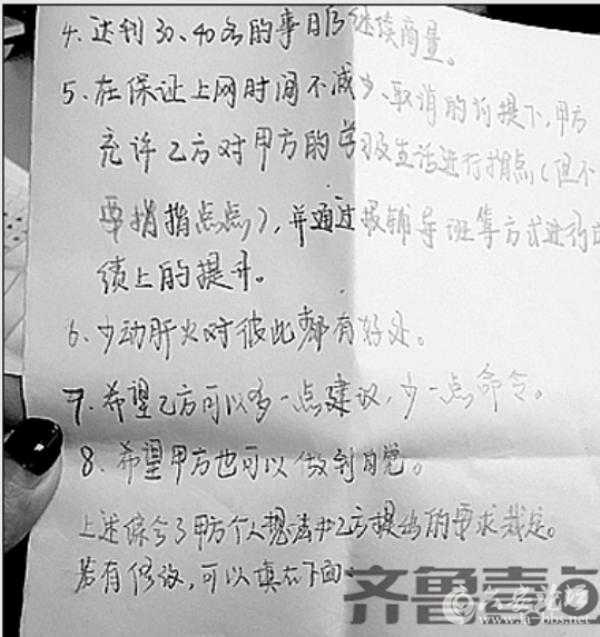 4. 达到30、40名的事日后继续商量。
5. 在保证上网时间不减少、取消的前提下,甲方
允许乙方对甲方的学习及生活进行指点,(但不
要指指点点),并通过报辅导班等方式进行成
绩上的提升。
6. 少动肝火对彼此都有好处。
7. 希望乙方可以多一点建议,少一点命令。
8. 希望甲方也可以做到自觉。
上述综合了甲方个人想法和乙方提出的要求裁定。
若有修改,可以填在下面。
齐鲁壹点